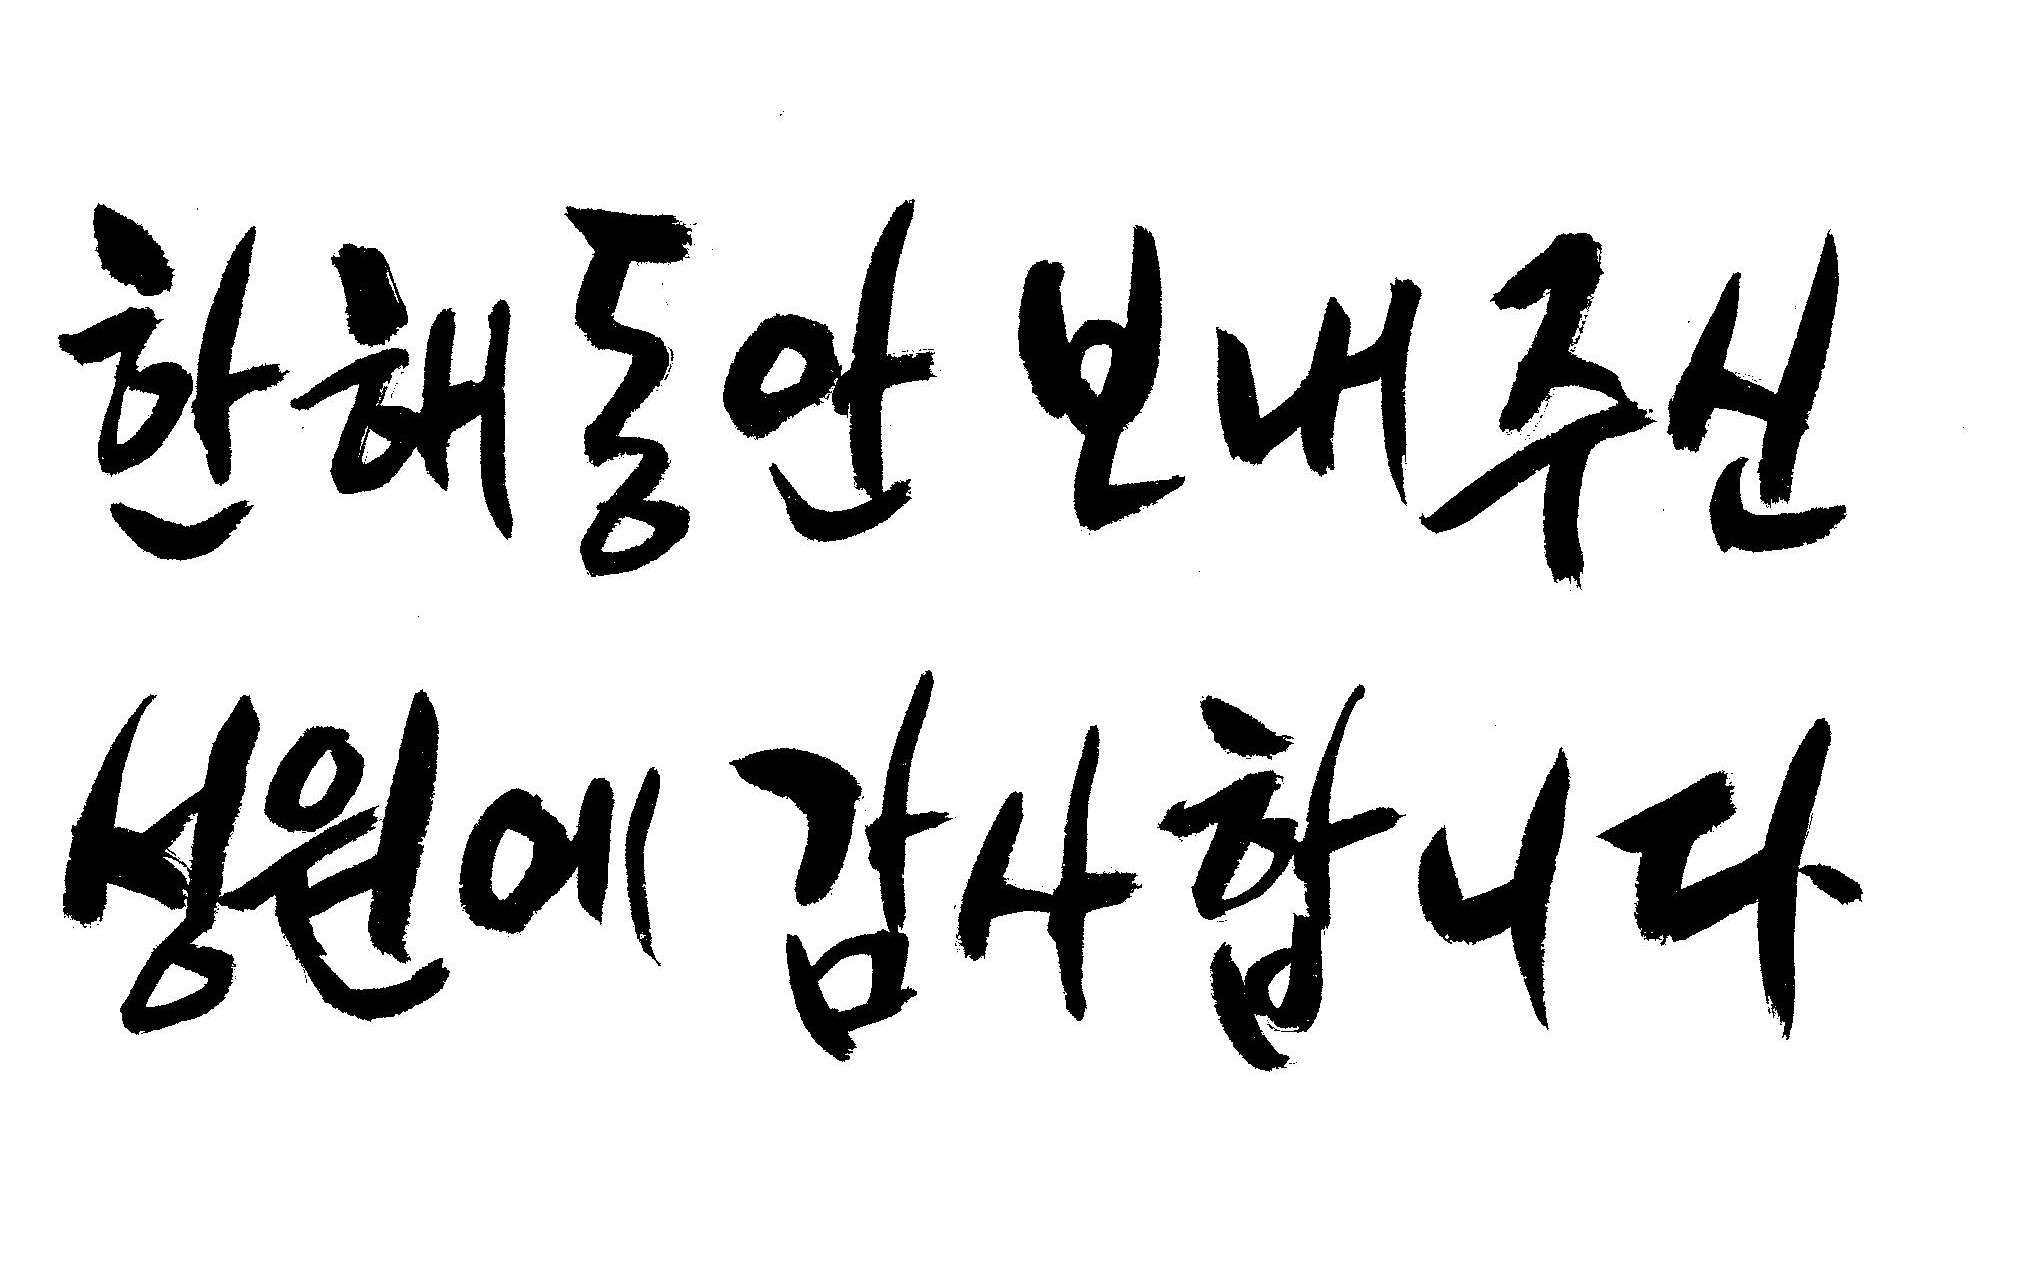 한해동안 보내주신
성원에 감사합니다